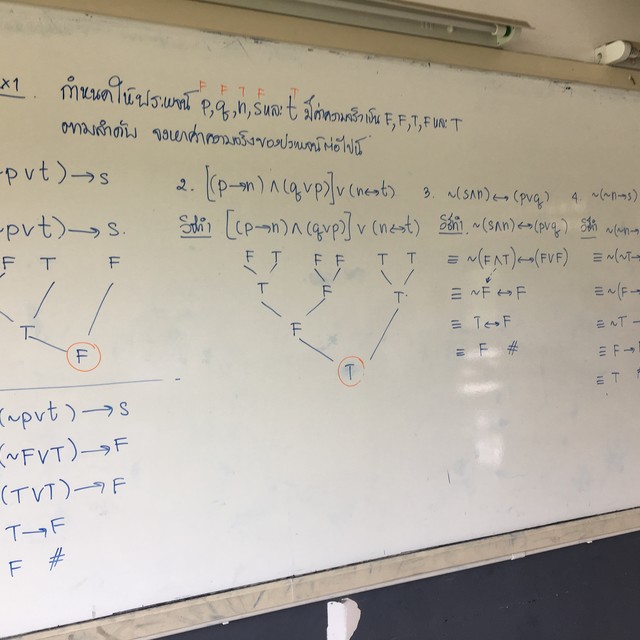 EX1. กำหนดให้ประพจน์ p, q, r, s และ t มีค่าความจริงเป็น F, F, T, F และ T
F F T F T
ตามลำดับ จงหาค่าความจริงของประพจน์ต่อไปนี้
~p∨t) → s
~p∨t) → s.
F T F
T
F
(~p∨t) → s
(~F∨T) → F
(T∨T) → F
T → F
F #
2. [(p→r)∧(q∨p)]∨(r↔t)
วิธีทำ [(p→r)∧(q∨p)]∨(r↔t)
F T F F T T
T F T
F
T
3. ~(s∧r)↔(p∨q)
วิธีทำ ~(s∧r)↔(p∨q)
≡ ~(F∧T)↔(F∨F)
≡ ~F ↔ F
≡ T ↔ F
≡ F #
4. ~(~r→s)
วิธีทำ ~(~r→
≡ ~(~T→
≡ ~(F→
≡ ~T →
≡ F →
≡ T #